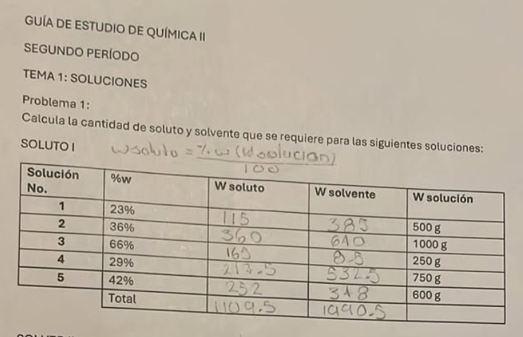 GUÍA DE ESTUDIO DE QUÍMICA II
SEGUNDO PERÍODO
TEMA 1: SOLUCIONES
Problema 1:
Calcula la cantidad de soluto y solvente que se requiere para las siguientes soluciones:
SOLUTO I wsoluto = %w (Wsolucion) / 100
Solución No. %w W soluto W solvente W solución
1 23% 115 385 500 g
2 36% 360 640 1000 g
3 66% 165 85 250 g
4 29% 217.5 532.5 750 g
5 42% 252 348 600 g
Total 1109.5 1990.5